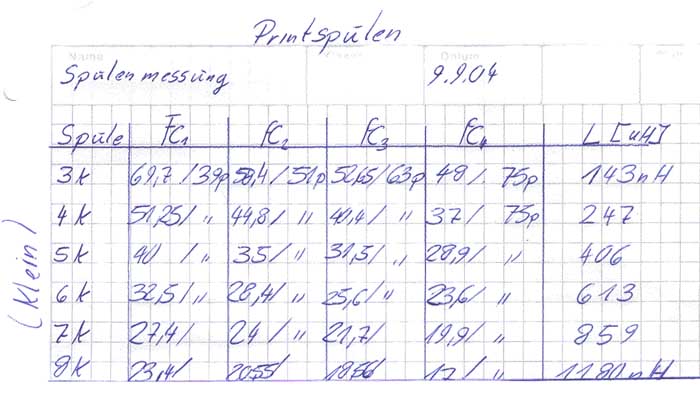 Printspulen
Name Datum
Spulenmessung 9.9.04
Spule FC1 FC2 FC3 FC4 L [nH]
3K 61,7/39p 58,4/51p 52,65/63p 48/ 75p 143nH
4K 51,25/ " 44,8/ " 40,4/ " 37/ 75p 247
5K 40 / " 35/ " 31,5/ " 28,9/ " 406
(Klein) 6K 32,5/ " 28,4/ " 25,6/ " 23,6/ " 613
7K 27,4/ 24/ " 21,7/ 19,9/ " 859
8K 23,4/ 20,55/ 18,56/ 17/ " 1180nH